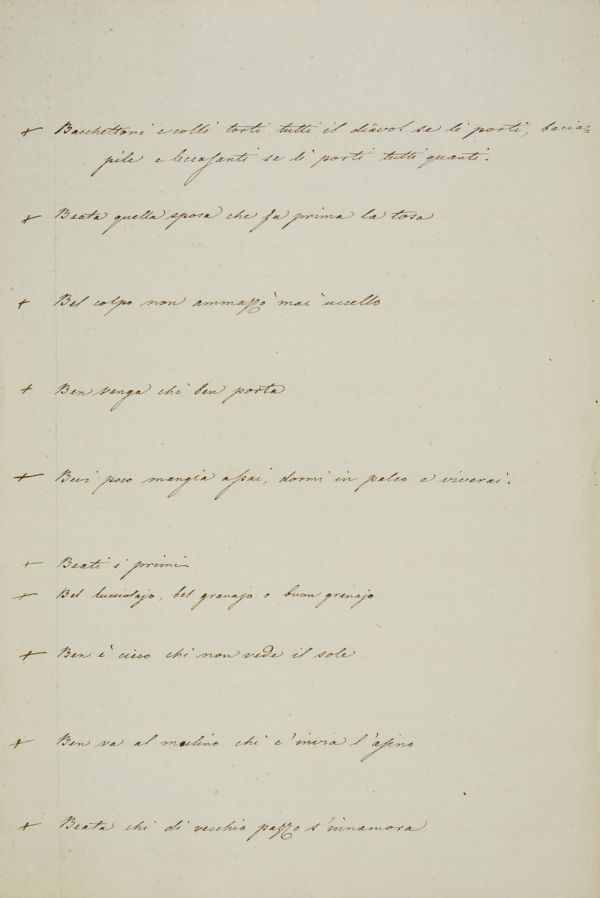 + Bacchettoni e colli torti tutti il diavol se li porti, bacia=
pile e leccasanti se li porti tutti quanti.
+ Beata quella sposa che fa prima la tosa
+ Bel colpo non ammazzò mai uccello
+ Ben venga chi ben porta
+ Bevi poco mangia assai, dormi in palco e viverai.
+ Beati i primi
+ Bel lucciolajo, bel granajo o buon granajo
+ Ben è cieco chi non vede il sole
+ Ben va al mulino chi c'invia l'asino
+ Beata chi di vecchio pazzo s'innamora